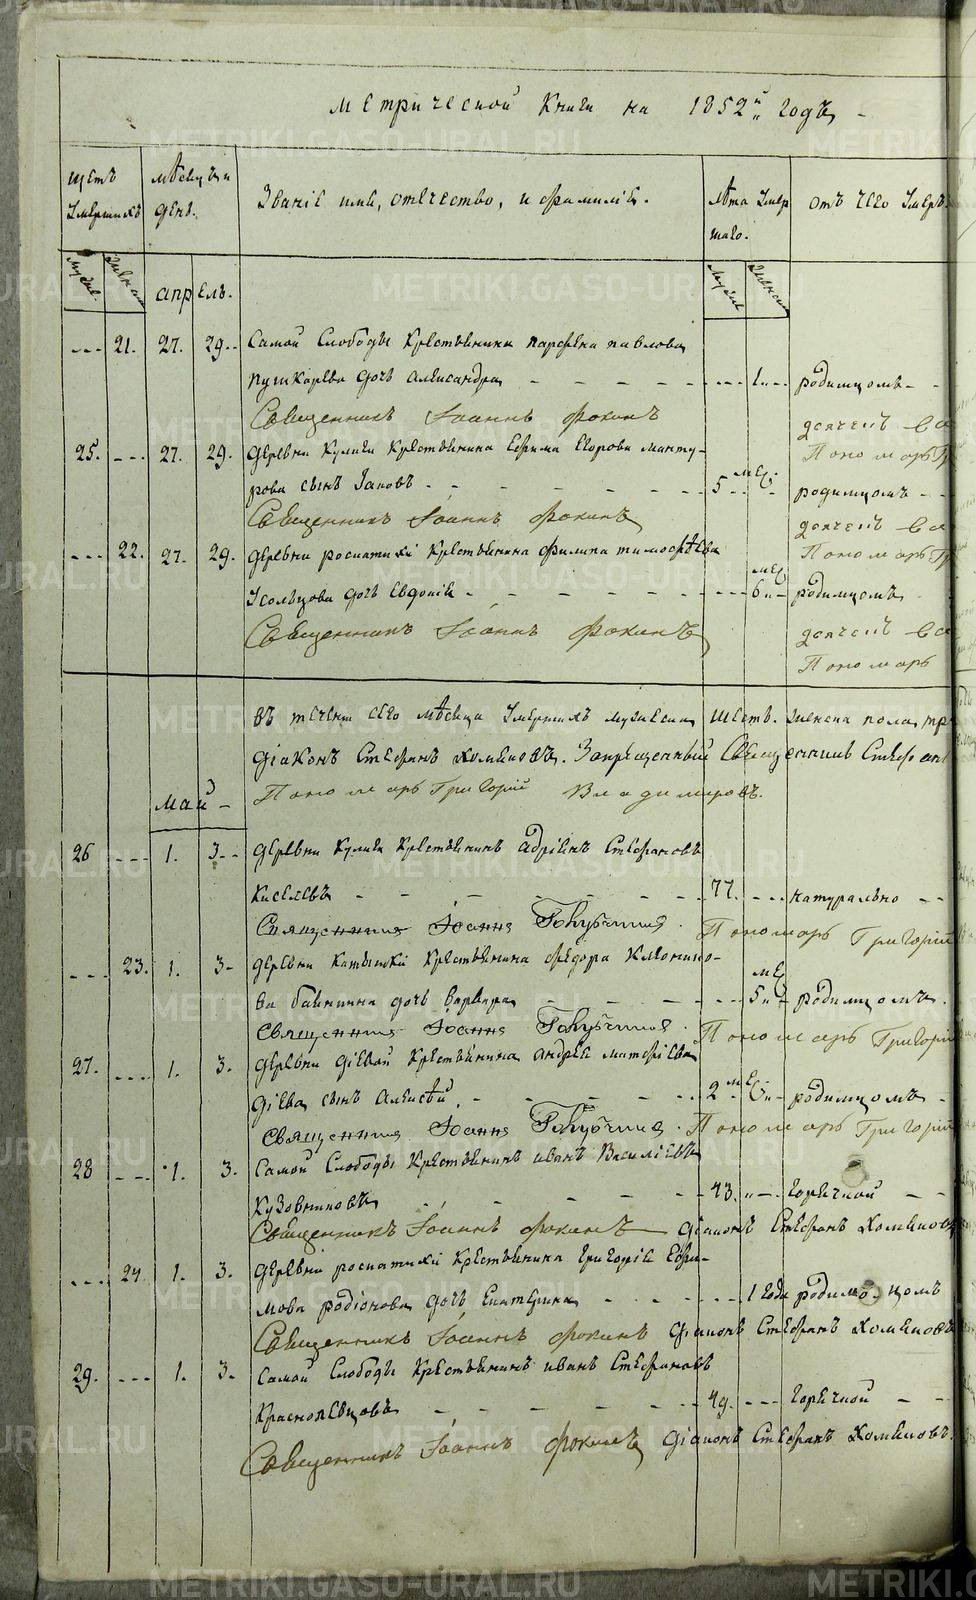 Метрической Книги на 1852й Годъ
щетъ Умершихъ
мѣсяцъ и день.
Званіе имя, отечество, и фамилія.
лѣта Умершаго.
отъ чего Умеръ
Муже. Женск.
апрель.
Муже Женск
--- 21. 27. 29. Самой Слободы Крестьянина парфена павлова
пушкарева дочь александра 1. родимцомъ
Священникъ Іоаннъ Фокинъ
25. --- 27. 29. деревни Кулики Крестьянина Ефрима Егорова манту-
Пономарь Гр
рова сынъ Іаковъ 5 мец. родимцомъ
Священникъ Іоаннъ Фокинъ
--- 22. 27. 29. деревни роспатихі Крестьянина филипа тимофѣева
Пономарь Гр
Усольцова дочь Евдокія 6 мец родимцомъ
Священникъ Іоаннъ Фокинъ
Пономарь
въ течени сего мѣсяца Умершихъ мужеска шесть. женска пола тр
діаконъ Стефанъ Хомяковъ. Запрещенный Священникъ Стефан
Пономарь Григорій Владимировъ.
май
26 --- 1. 3 деревни Кулики Крестьянинъ адріянъ Стефановъ
Киселевъ 77. --- натурально
Священникъ Іоаннъ Пономарь Григорій
--- 23. 1. 3 деревни Крестьянина федора
ва дочь варвара 5 мец родимцомъ.
Священникъ Іоаннъ Пономарь Григорій
27. --- 1. 3. деревни діевой Крестьянина андрея матфіева
діева сынъ алексѣй. 2 мец родимцомъ
Священникъ Іоаннъ Пономарь Григорій
28 --- 1. 3. Самой Слободы Крестьянинъ иванъ Василіевъ
Кузовниковъ 43. горячкой
Священникъ Іоаннъ Фокинъ діаконъ Стефанъ Хомяковъ
--- 24 1. 3. деревни роспатихі Крестьянина григорія Ефи-
мова родіонова дочь Екатерина 1 года родимцомъ
Священникъ Іоаннъ Фокинъ діаконъ Стефанъ Хомяковъ
29. --- 1. 3. Самой Слободы Крестьянинъ иванъ Стефановъ
Краснопевцовъ 49. --- горячкой
Священникъ Іоаннъ Фокинъ діаконъ Стефанъ Хомяковъ.
METRIKI.GASO-URAL.RU